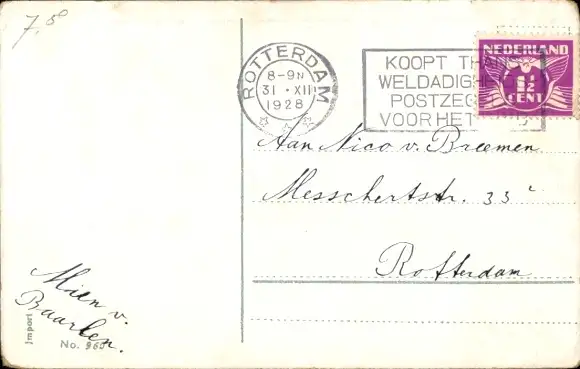 7,50
ROTTERDAM
8-9N
31 · XII
1928
KOOPT THANS
WELDADIGH
POSTZEG
VOOR HET
NEDERLAND
1½
CENT
Aan Nico v. Breemen
Messchertstr. 33
Rotterdam
Mien v.
Baarlen.
Import
No. 960